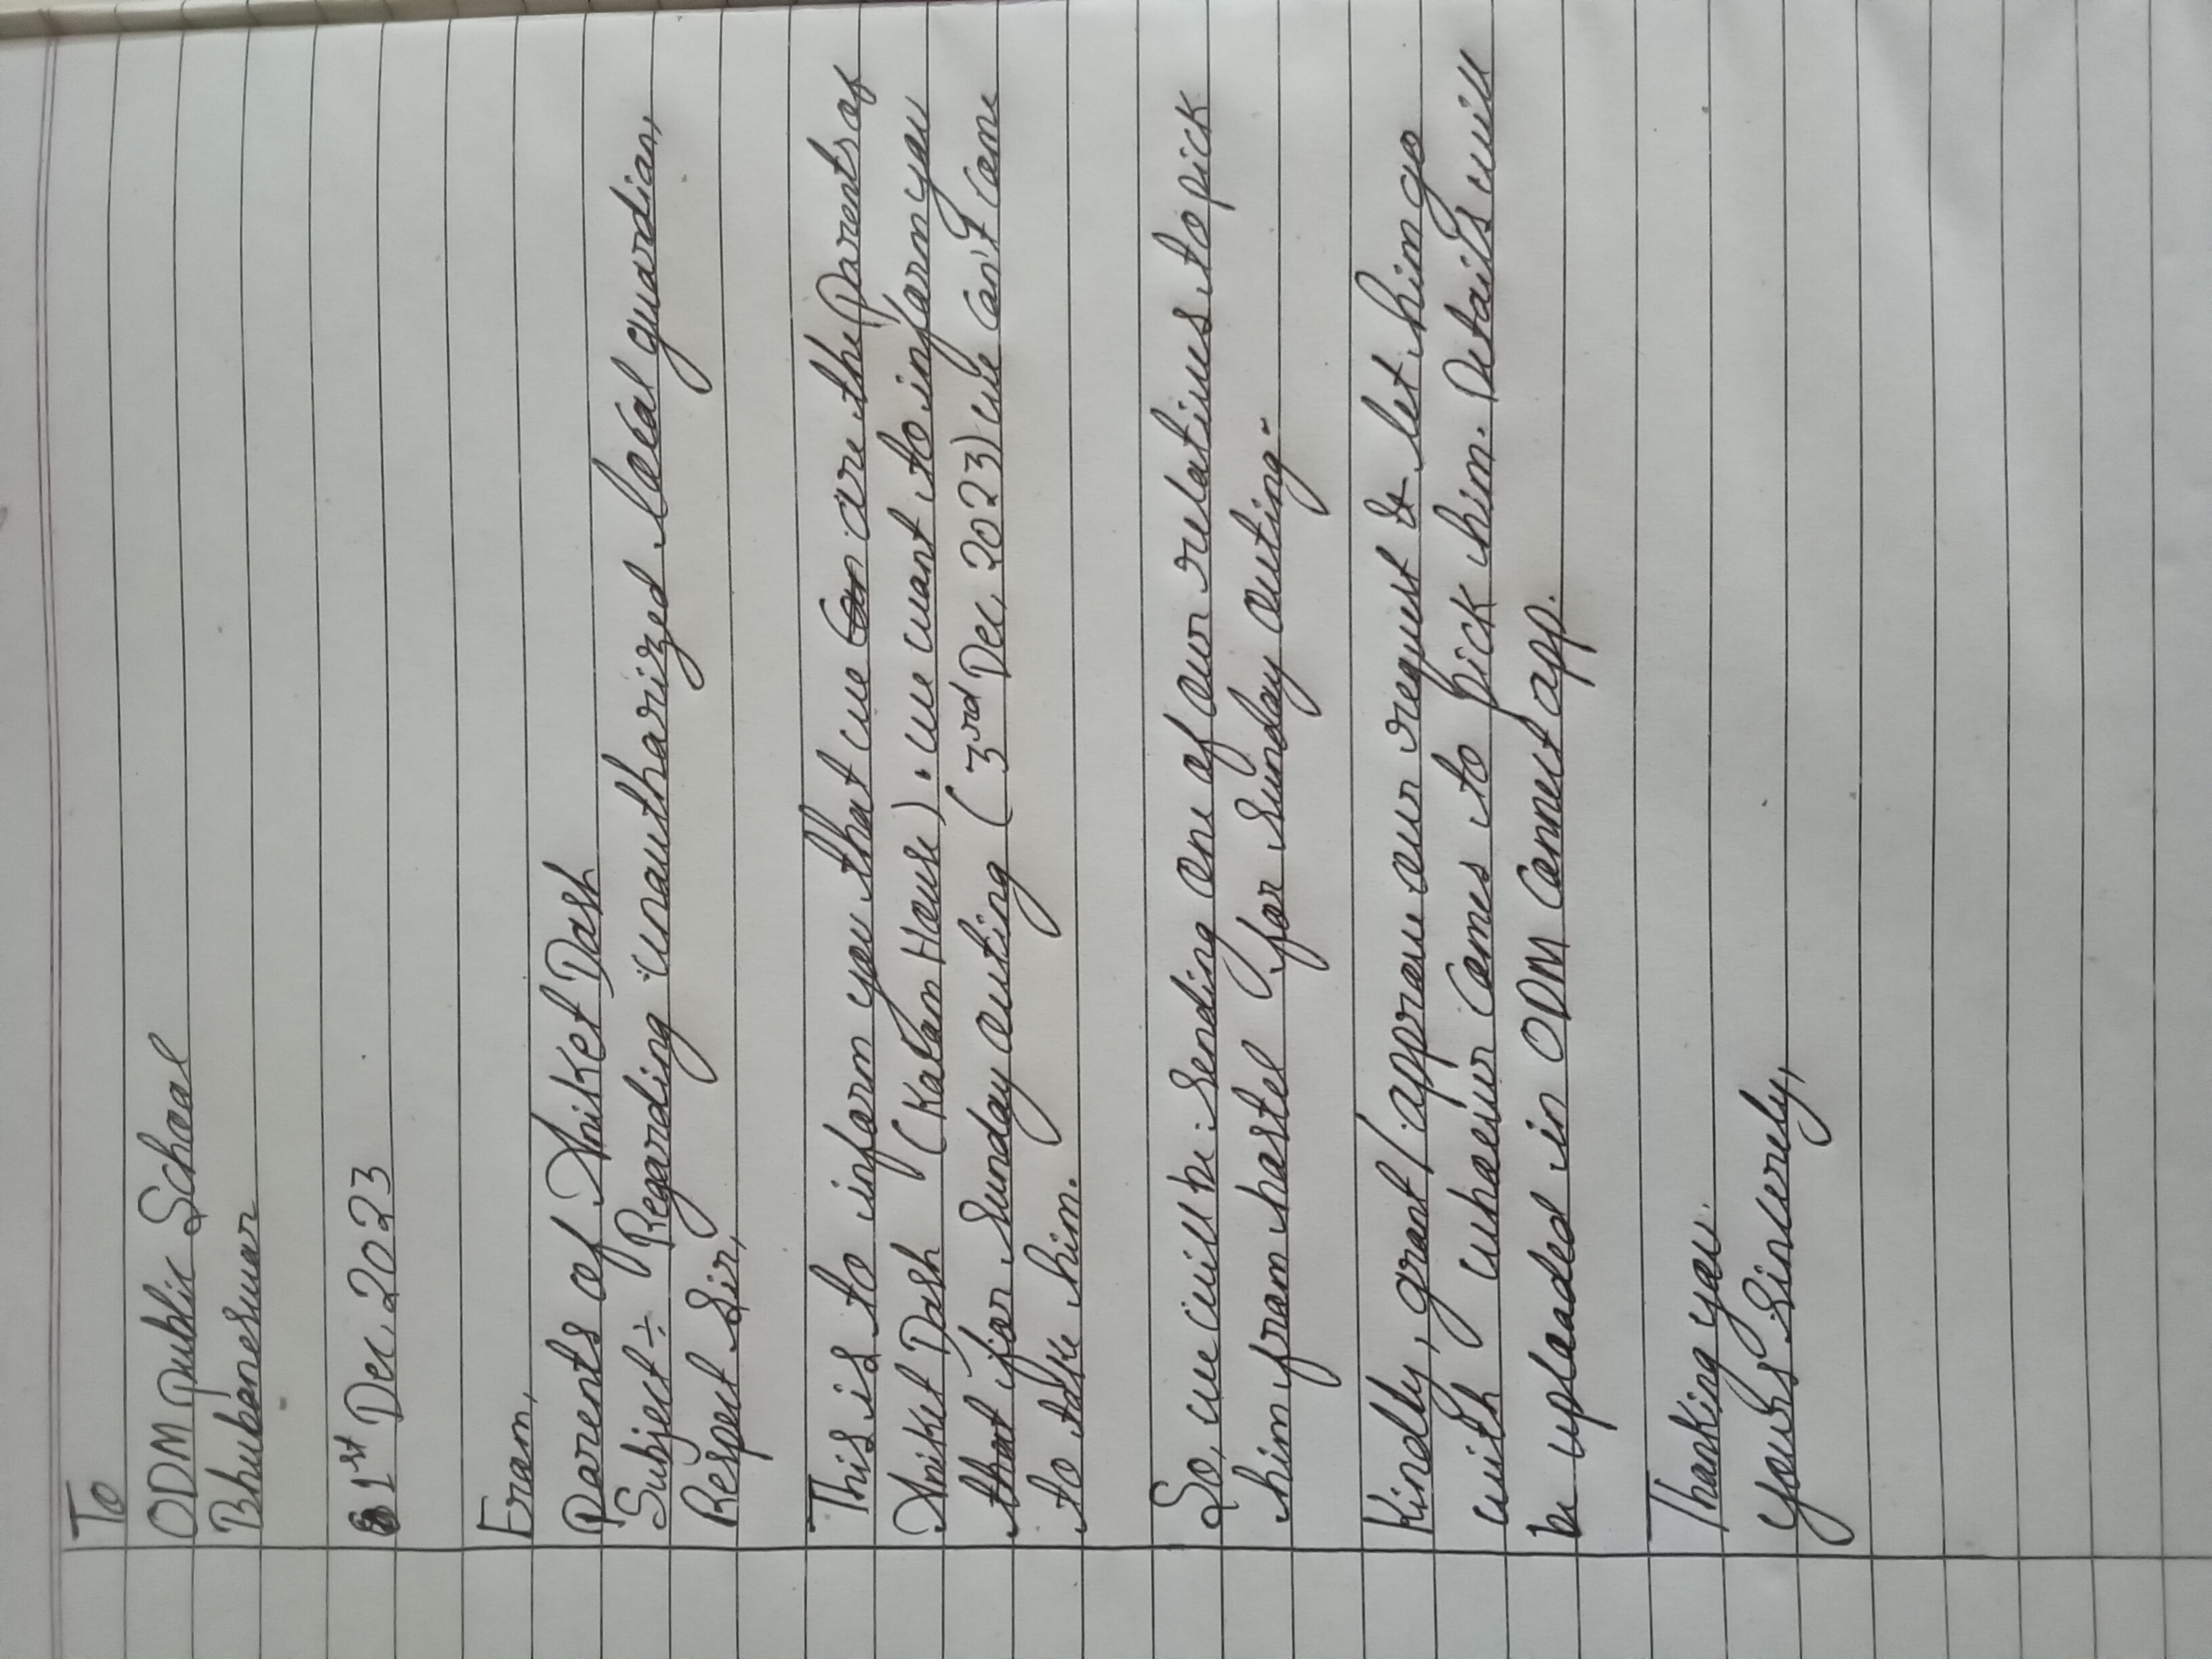 To
ODM Public School
Bhubaneswar
1st Dec, 2023
From,
Parents of Aniket Dash
Subject ÷ Regarding unautharized local guardian,
Respect Sir,
This is to inform you that we are the Parents of
Aniket Dash (Kalam House). we want to inform you
that for Sunday outing (3rd Dec, 2023) we can't come
to take him.
So, we will be sending one of our relatives to pick
him from hostel for Sunday outing.
Kindly, grant / approve our request & let him go
with whoever comes to pick him. Details will
be uploaded in ODM Connect app.
Thanking you.
yours sincerely,